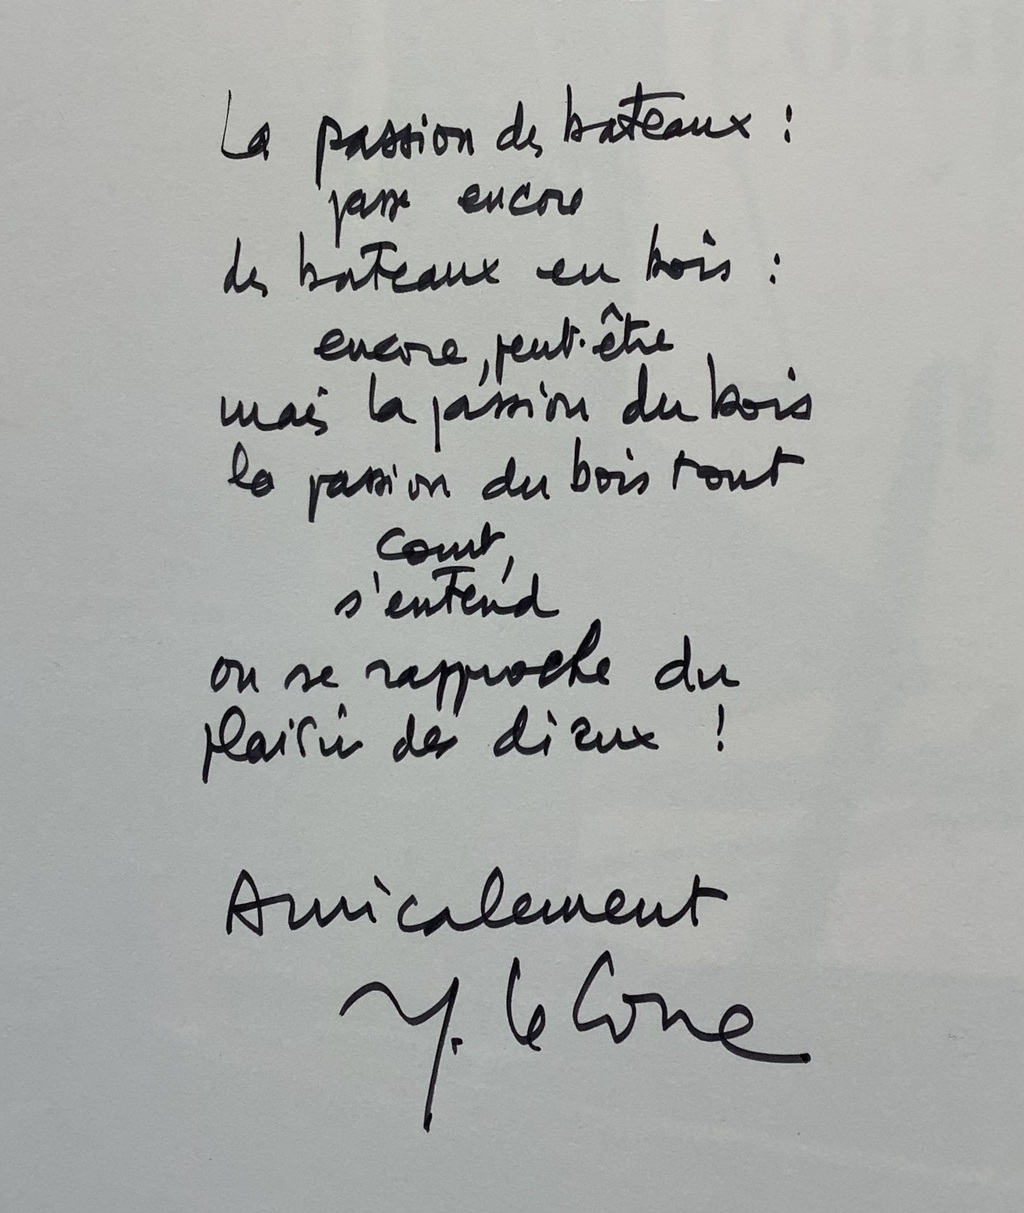 La passion des bateaux :
passe encore
des bateaux en bois :
encore, peut-être
mais la passion du bois
la passion du bois tout
court,
s'entend
on se rapproche du
plaisir des dieux !
Amicalement
Y. Le